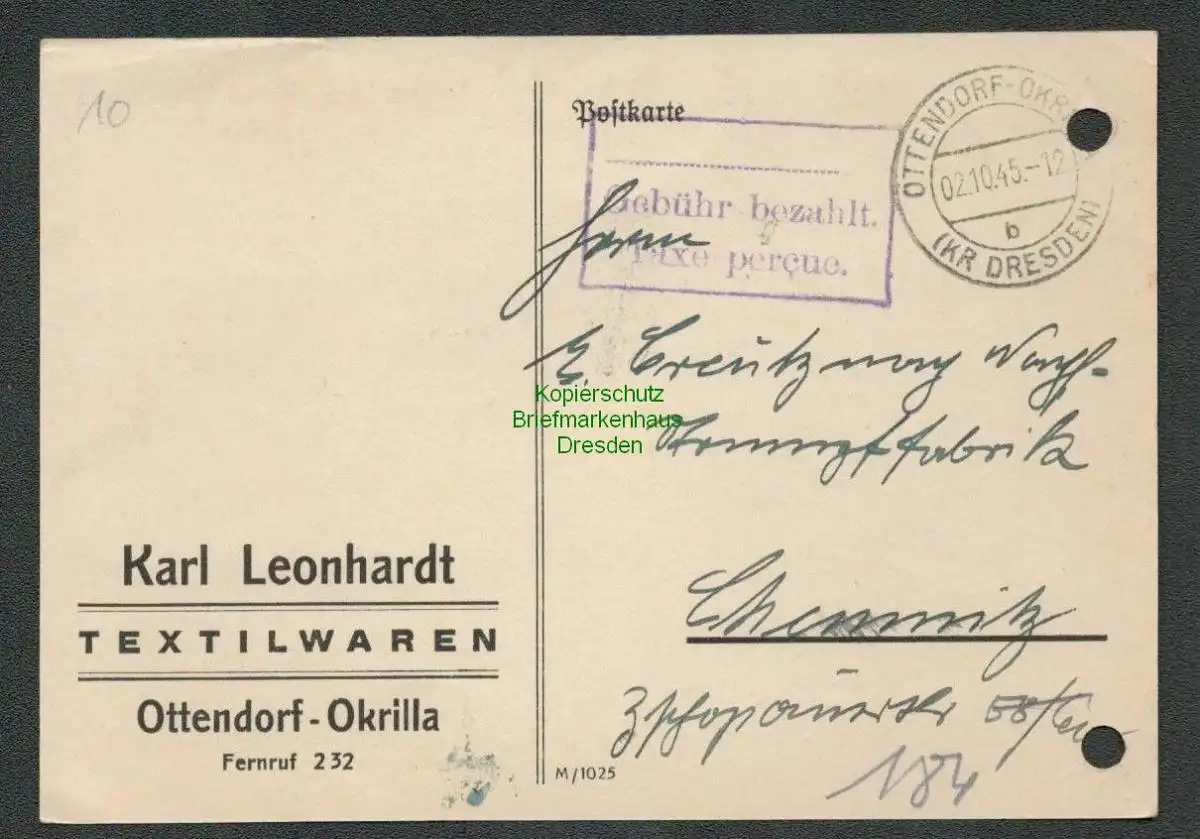 10
Postkarte
OTTENDORF-OKR
02.10.45.-12
b
(KR DRESDEN)
Gebühr bezahlt.
Taxe perçue.
Herrn
E. Creutznach Nachf.
Strumpffabrik
Kopierschutz
Briefmarkenhaus
Dresden
Chemnitz
Zschopauerstr
184
Karl Leonhardt
TEXTILWAREN
Ottendorf-Okrilla
Fernruf 232
M/1025